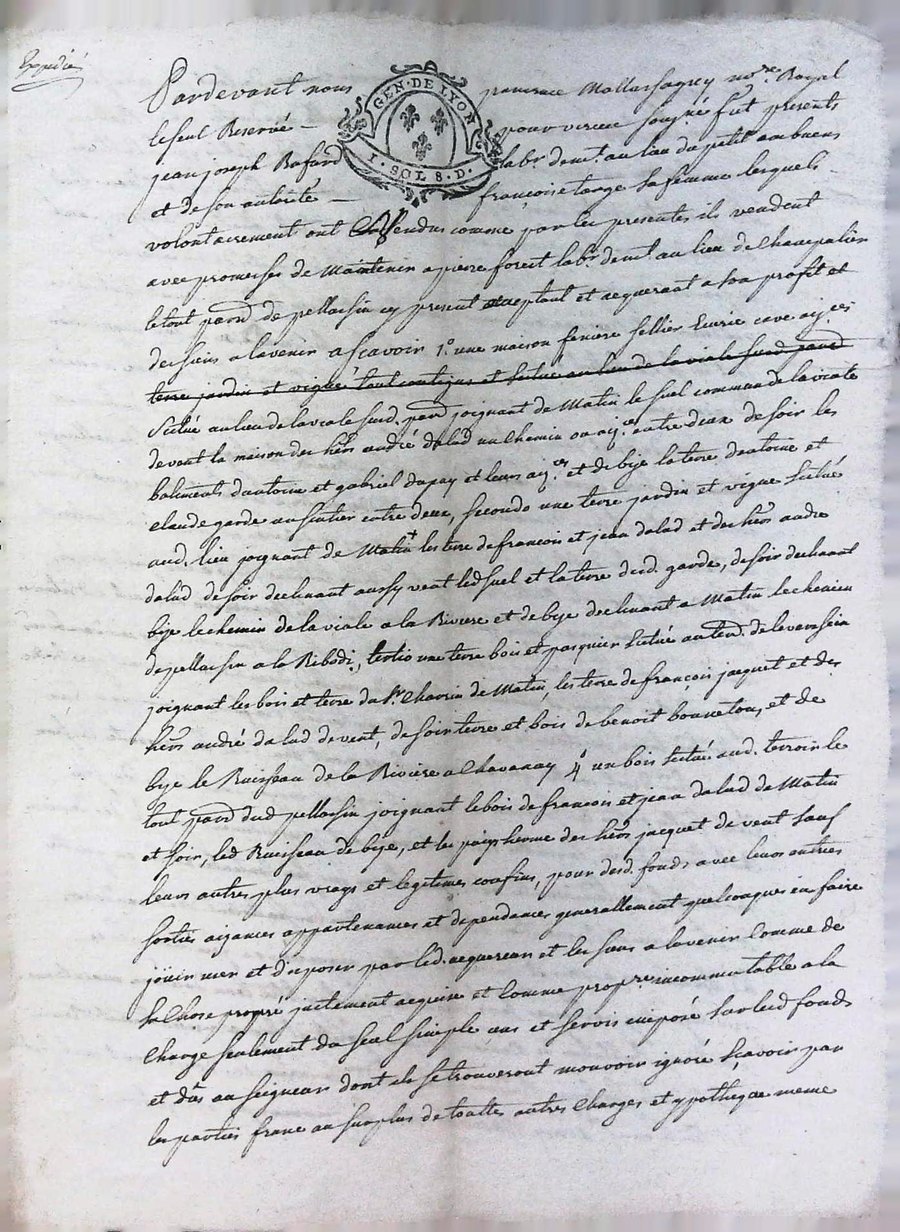 Expedié
GEN. DE LYON
1. SOL 8. D.
Pardevant nous notre. Royal
le seul Reservé pour vireu soigné fut presents
jean joseph Bafard labr. demt. au lieu du petit
et de son autorité françoise sa femme lesquels
volontairement ont vendus comme par les presentes ils vendent
avec promesses de Maintenir a pierre forest labr. demt. au lieu de Champalier
le tout paroisse de pellassin cy present acceptant et aquerant a son profit et
des siens a lavenir a scavoir 1°. une maison feniere sellier Ecurie cave aizces
terre jardin et vigne tout contigus et situé au lieu de la viale sud. parsse
situé au lieu de la viale susd. parsse joignant de Matin le suel commun de la viale
devant la maison des hers andré dalud un chemin ou aizce entre deux de soir les
batiments dantoine et gabriel dupuy et leurs aizces et de bize la terre dantoine et
claude garde un sentier entre deux, secondo une terre jardin et vigne situé
aud. lieu joignant de Matin les terre de francois et jean dalud et des hers andré
dalud de soir declinant aussy vent led suel et la terre dud. garde, de soir declinant
bize le chemin de la viale a la Riviere et de bize declinant a Matin le chemin
de pellassin a la Ribodi, tertio une terre bois et paquier situé au terr. de
joignant les bois et terre du sr. Chavrin de Matin, les terre de françois jacquet et des
hers andré dalud de vent, de soir terre et bois de benoit bonneton, et de
bize le Ruisseau de la Riviere a Chavanay 4° un bois situé aud. terroir le
tout parsse dud pellassin joignant le bois de francois et jean dalud de Matin
et soir, led Ruisseau de bize, et les herme des hers jacquet de vent sauf
leurs autres plus vrays et legitimes confins, pour desd. fonds avec leurs entrées
sorties aizances appartenances et dependances generallement quelconques en faire
jouir user et disposer par led. aquereur et les siens a lavenir Comme de
sa Chose propre justement acquise et Comme propre. incommutable a la
Charge seulement du seul simple cens et servis imposé sur led fonds
et dûs au seigneur dont ils se trouveront mouvoir ignoré scavoir par
les parties franc au surplus de toutte autres Charges et ypotheque meme